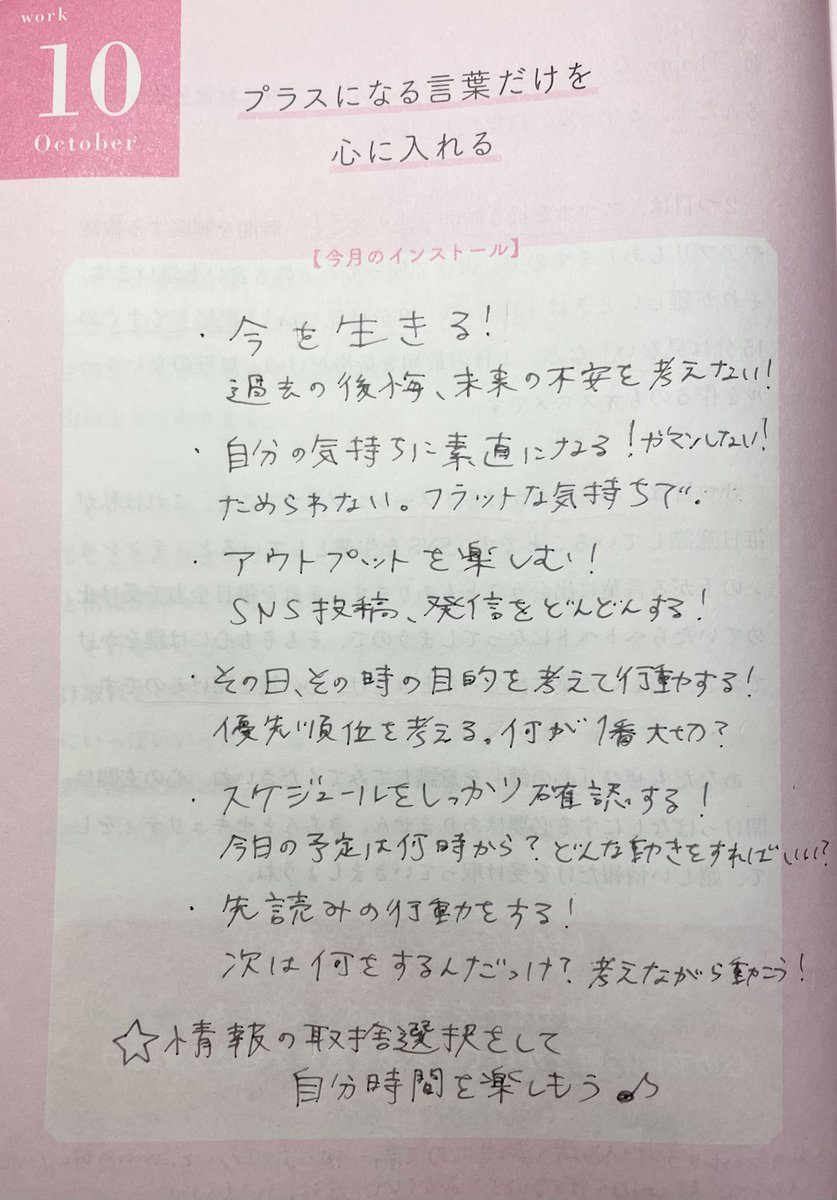 work
10
October
プラスになる言葉だけを
心に入れる
【今月のインストール】
・今を生きる!
過去の後悔、未来の不安を考えない!
・自分の気持ちに素直になる!ガマンしない!
ためらわない。フラットな気持ちで。
・アウトプットを楽しむ!
SNS投稿、発信をどんどんする!
・その日、その時の目的を考えて行動する!
優先順位を考える。何が1番大切?
・スケジュールをしっかり確認する!
今日の予定は何時から?どんな動きをすればいい?
・先読みの行動をする!
次は何をするんだっけ?考えながら動こう!
☆情報の取捨選択をして
自分時間を楽しもう♪